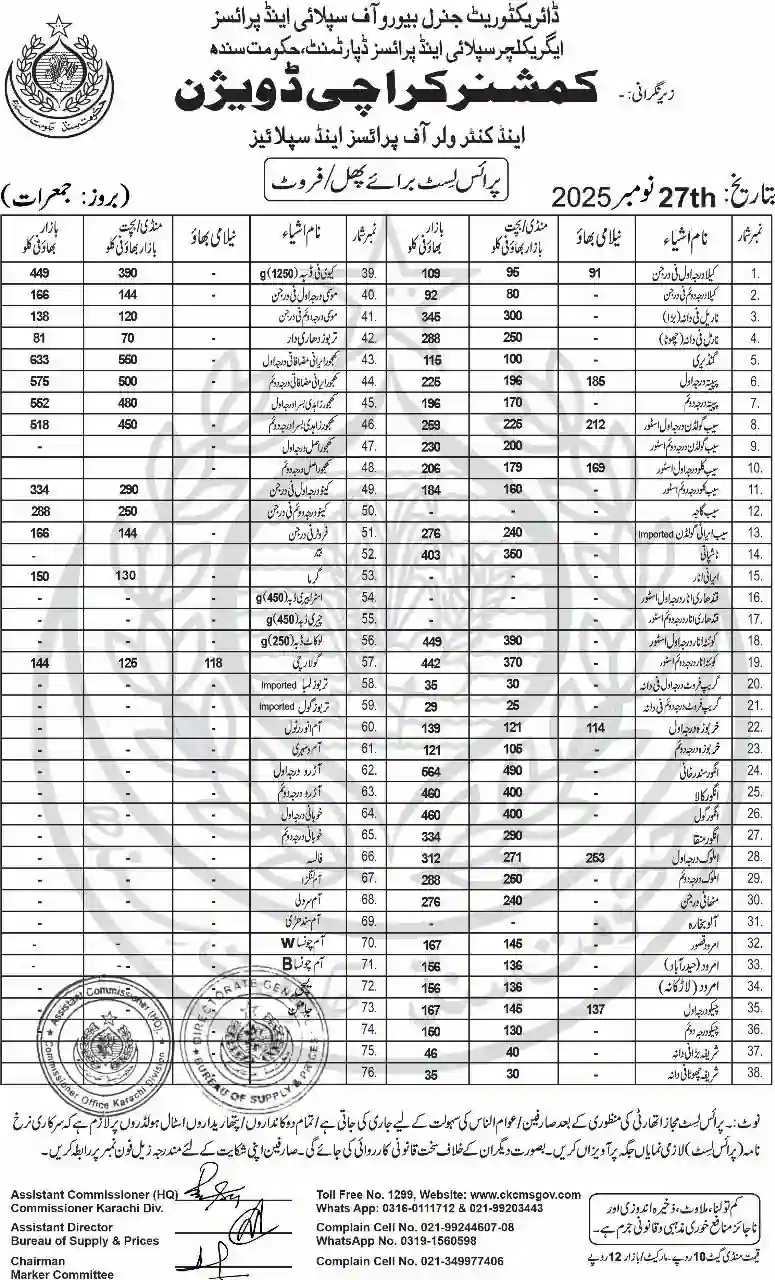 ڈائریکٹوریٹ جنرل بیورو آف سپلائی اینڈ پرائسز
ایگریکلچر سپلائی اینڈ پرائسز ڈپارٹمنٹ، حکومت سندھ
زیر نگرانی:- کمشنر کراچی ڈویژن
اینڈ کنٹرولر آف پرائسز اینڈ سپلائیز
پرائس لسٹ برائے پھل/فروٹ
تاریخ: 27th نومبر 2025 (بروز: جمعرات)
نمبر شمار نام اشیاء نیلامی بھاؤ منڈی/بچت بازار بھاؤ فی کلو بازار بھاؤ فی کلو نمبر شمار نام اشیاء نیلامی بھاؤ منڈی/بچت بازار بھاؤ فی کلو بازار بھاؤ فی کلو
1. کیلا درجہ اول فی درجن 91 95 109 39. کیوی فی ڈبہ (1250)g - 390 449
2. کیلا درجہ دوئم فی درجن - 80 92 40. موسمی درجہ اول فی درجن - 144 166
3. ناریل فی دانہ (بڑا) - 300 345 41. موسمی درجہ دوئم فی درجن 120 138
4. ناریل فی دانہ (چھوٹا) - 250 288 42. تربوز دھاری دار - 70 81
5. گنڈیری - 100 115 43. کھجور ایرانی مضافاتی درجہ اول - 550 633
6. پپیتہ درجہ اول 185 196 225 44. کھجور ایرانی مضافاتی درجہ دوئم - 500 575
7. پپیتہ درجہ دوئم - 170 196 45. کھجور زاہدی بسرا درجہ اول - 480 552
8. سیب گولڈن درجہ اول اسٹور 212 225 259 46. کھجور زاہدی بسرا درجہ دوئم - 450 518
9. سیب گولڈن درجہ دوئم اسٹور - 200 230 47. کھجور اصل درجہ اول - -
10. سیب کلو درجہ اول اسٹور 169 179 206 48. کھجور اصل درجہ دوئم -
11. سیب کلو درجہ دوئم اسٹور - 160 184 49. کینو درجہ اول فی درجن - 290 334
12. سیب گاجہ - - - 50. کینو درجہ دوئم فی درجن - 250 288
13. سیب ایرانی گولڈن Imported - 240 276 51. فروٹر فی درجن - 144 166
14. ناشپاتی - 350 403 52. - -
15. ایرانی انار - - - 53. گرما - 130 150
16. قندھاری انار درجہ اول اسٹور - - - 54. اسٹرابیری ڈبہ (450)g - - -
17. قندھاری انار درجہ دوئم اسٹور - - - 55. چیری ڈبہ (450)g - - -
18. کوئٹہ انار درجہ اول اسٹور - 390 449 56. لوکاٹ ڈبہ (250)g - - -
19. کوئٹہ انار درجہ دوئم اسٹور - 370 442 57. گولارچی 118 125 144
20. گریپ فروٹ درجہ اول فی دانہ - 30 35 58. تربوز لمبا Imported - - -
21. گریپ فروٹ درجہ دوئم فی دانہ - 25 29 59. تربوز گول Imported - - -
22. خربوزہ درجہ اول 114 121 139 60. آم انور رٹول - - -
23. خربوزہ درجہ دوئم - 105 121 61. آم دسہری - - -
24. انگور سندرخانی - 490 564 62. آڑو درجہ اول - - -
25. انگور کالا - 400 460 63. آڑو درجہ دوئم - - -
26. انگور گول - 400 460 64. خوبانی درجہ اول - - -
27. انگور منقا - 290 334 65. خوبانی درجہ دوئم - - -
28. املوک درجہ اول 253 271 312 66. فالسہ - - -
29. املوک درجہ دوئم - 250 288 67. آم لنگڑا - - -
30. مٹھا فی درجن - 240 276 68. آم سرولی - - -
31. آلو بخارہ - - - 69. آم سندھڑی - - -
32. امرود قصور - 145 167 70. آم چونسا W - - -
33. امرود (حیدرآباد) - 136 156 71. آم چونسا B - - -
34. امرود (لاڑکانہ) - 136 156 72. - -
35. چیکو درجہ اول 137 145 167 73. جامن
36. چیکو درجہ دوئم - 130 150 74.
37. شریفہ بڑا فی دانہ - 40 46 75.
38. شریفہ چھوٹا فی دانہ - 30 35 76.
Assistant Commissioner (HQ) Commissioner Office Karachi Division
DIRECTORATE GENERAL BUREAU OF SUPPLY & PRICES
نوٹ:۔ پرائس لسٹ مجاز اتھارٹی کی منظوری کے بعد صارفین/عوام الناس کی سہولت کے لیے جاری کی جاتی ہے/تمام دوکانداروں/پتھاریداروں اسٹال ہولڈروں پر لازم ہے کہ سرکاری نرخ
نامہ (پرائس لسٹ) لازمی نمایاں جگہ پر آویزاں کریں۔ بصورت دیگر ان کے خلاف سخت قانونی کارروائی کی جائے گی۔ صارفین اپنی شکایت کے لئے مندرجہ زیل فون نمبر پر رابطہ کریں۔
Assistant Commissioner (HQ)
Commissioner Karachi Div.
Toll Free No. 1299, Website: www.ckcmsgov.com
Whats App: 0316-0111712 & 021-99203443
Assistant Director
Bureau of Supply & Prices
Complain Cell No. 021-99244607-08
WhatsApp No. 0319-1560598
Chairman
Marker Committee
Complain Cell No. 021-349977406
کم تولنا، ملاوٹ، ذخیرہ اندوزی اور
ناجائز منافع خوری مذہبی و قانونی جرم ہے۔
قیمت منڈی گیٹ 10 روپے۔ مارکیٹ/بازار 12 روپے